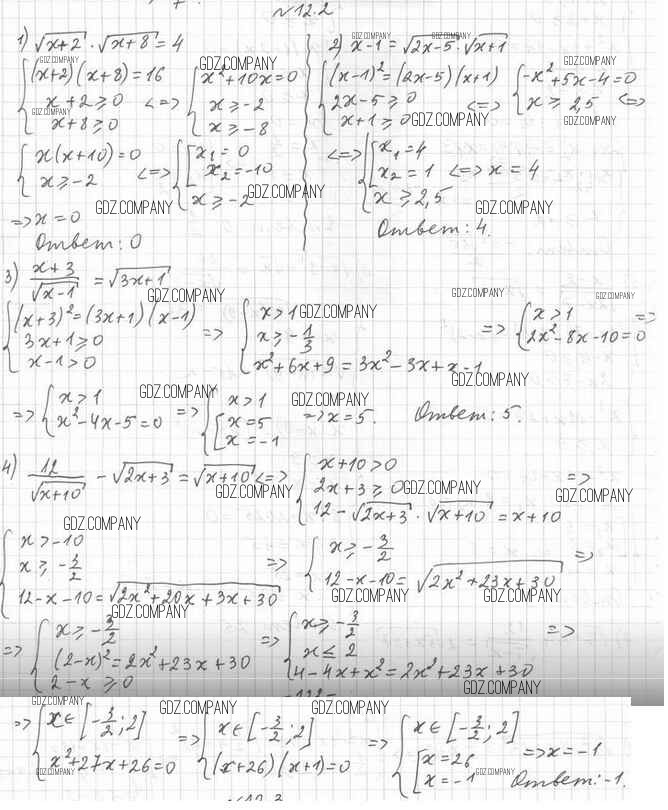 №12.2
1) √(x+2) · √(x+8) = 4
{ (x+2)(x+8) = 16
x+2 ≥ 0
x+8 ≥ 0
<=> { x²+10x = 0
x ≥ -2
x ≥ -8
{ x(x+10) = 0
x ≥ -2
<=> { [ x₁ = 0
x₂ = -10
x ≥ -2
=> x = 0
Ответ: 0
2) x-1 = √(2x-5) · √(x+1)
{ (x-1)² = (2x-5)(x+1)
2x-5 ≥ 0
x+1 ≥ 0
<=> { -x²+5x-4 = 0
x ≥ 2,5
<=>
<=> { [ x₁ = 4
x₂ = 1
x ≥ 2,5
<=> x = 4
Ответ: 4.
3) (x+3)/√(x-1) = √(3x+1)
{ (x+3)² = (3x+1)(x-1)
3x+1 ≥ 0
x-1 > 0
=> { x > 1
x ≥ -1/3
x²+6x+9 = 3x²-3x+x-1
=> { x > 1
2x²-8x-10 = 0
=>
=> { x > 1
x²-4x-5 = 0
=> { x > 1
[ x = 5
x = -1
=> x = 5.
Ответ: 5.
4) 12/√(x+10) - √(2x+3) = √(x+10) <=> { x+10 > 0
2x+3 ≥ 0
12 - √(2x+3) · √(x+10) = x+10
=>
{ x > -10
x ≥ -3/2
12-x-10 = √(2x²+20x+3x+30)
=> { x ≥ -3/2
12-x-10 = √(2x²+23x+30)
=>
=> { x ≥ -3/2
(2-x)² = 2x²+23x+30
2-x ≥ 0
=> { x ≥ -3/2
x ≤ 2
4-4x+x² = 2x²+23x+30
=>
=> { x ∈ [-3/2; 2]
x²+27x+26 = 0
=> { x ∈ [-3/2; 2]
(x+26)(x+1) = 0
=> { x ∈ [-3/2; 2]
[ x = 26
x = -1
=> x = -1
Ответ: -1.
GDZ.COMPANY